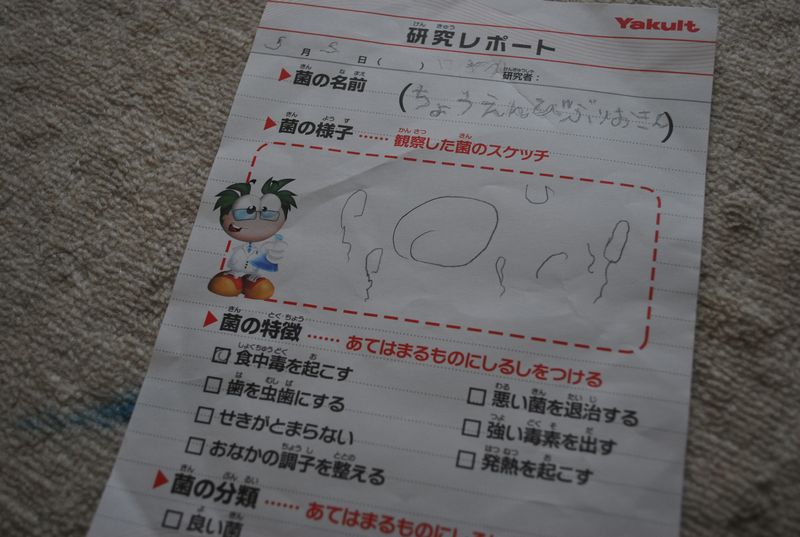 Yakult
研究レポート
5月5日( ) 研究者:
菌の名前 (ちょうえんびぶりおきん)
菌の様子 …… 観察した菌のスケッチ
菌の特徴 …… あてはまるものにしるしをつける
食中毒を起こす
歯を虫歯にする
せきがとまらない
おなかの調子を整える
悪い菌を退治する
強い毒素を出す
発熱を起こす
菌の分類 …… あてはまるものにしる
良い菌